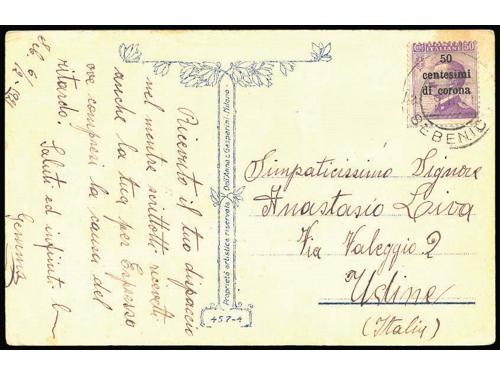 Ricevuto il tuo dispaccio
nel mentre scrittotti ricevetti
anche la tua per Espresso
ove compresi la causa del
ritardo.
Saluti ed infiniti
Gemma
Proprietà artistica riservata
457-4
50
centesimi
di corona
SEBENIC
Simpaticissimo Signore
Anastasio Luva
Via Valeggio 2
Udine
(Italia)